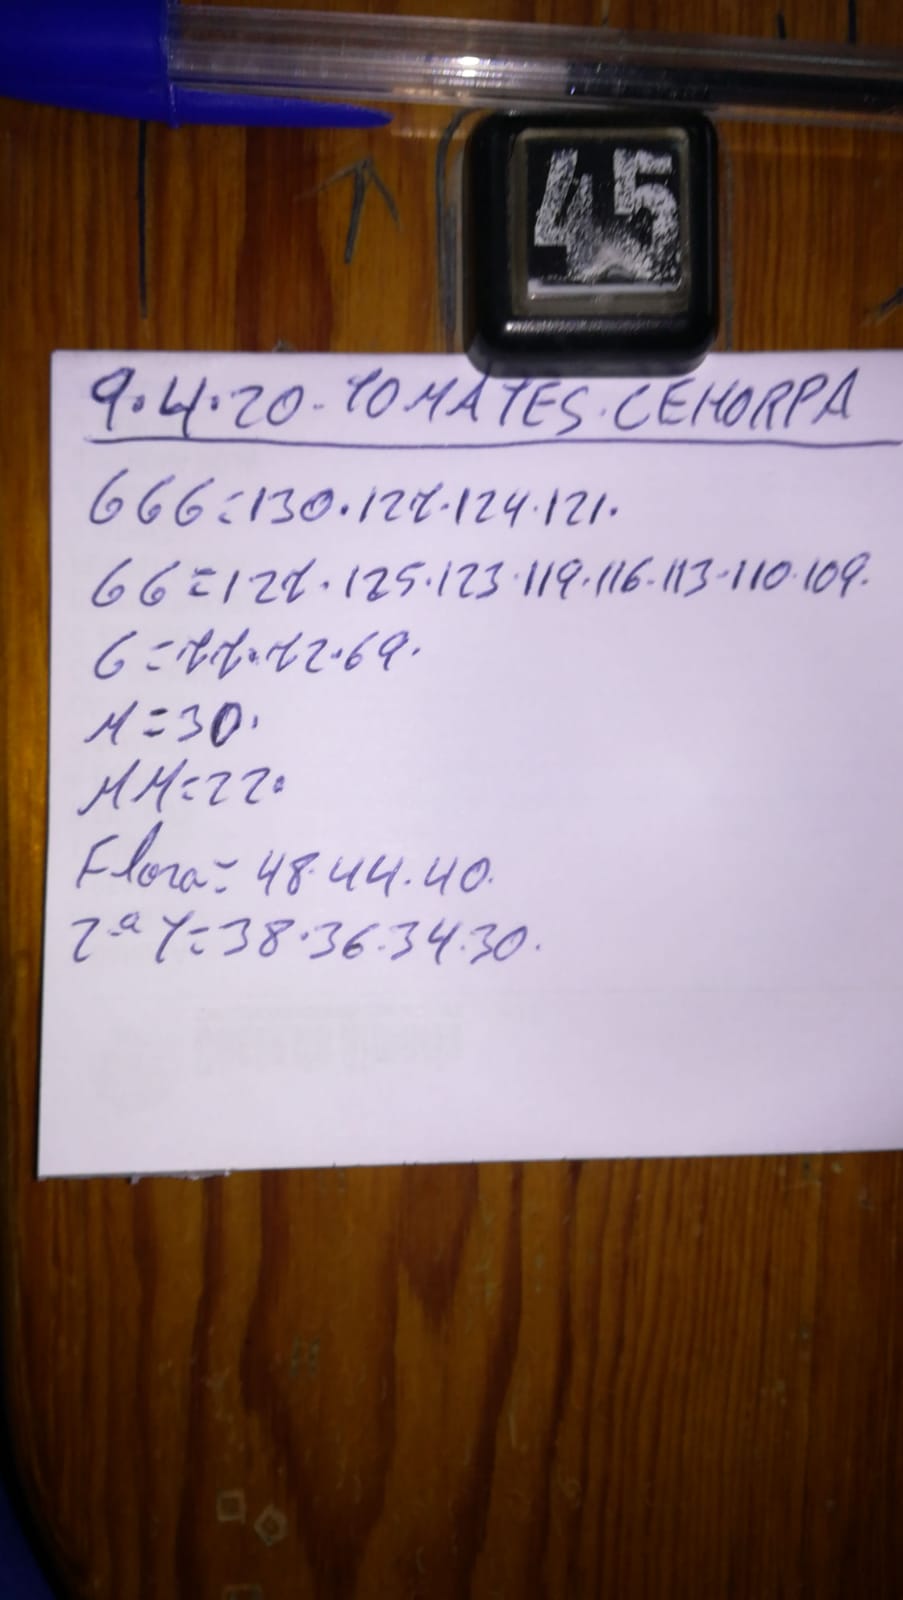 45
9.4.20-TOMATES.CEHORPA
GGG=130.127.124.121.
GG=127.125.123.119.116.113.110.109.
G=77.72.69.
M=30.
MM=22.
Flora=48.44.40.
2ªY=38.36.34.30.